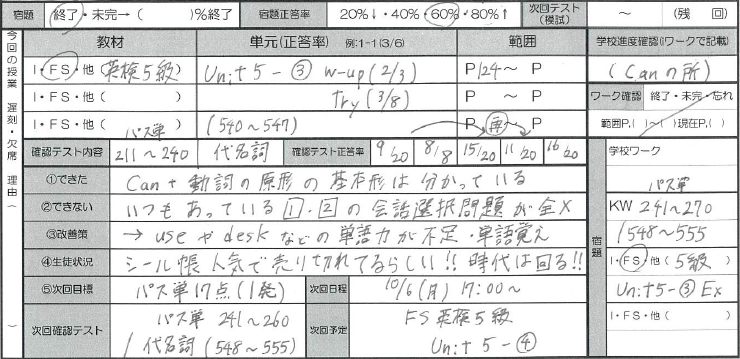 宿題 終了・未完→( )%終了 宿題正答率 20%↓・40%・60%・80%↑ 次回テスト(模試) ～ (残 回)
今回の授業 遅刻・欠席 理由( )
教材 単元(正答率) 例:1-1(3/6) 範囲 学校進度確認(ワークで記載)
I・FS・他(英検5級) Unit 5-③ w-up(2/3) P124～ P (Canの所)
I・FS・他( ) Try(3/8) P ～ P ワーク確認 終了・未完・忘れ
I・FS・他( ) パス単 (540～547) P 再～ P 範囲P.( )～( )現在P.( )
確認テスト内容 211～240 代名詞 確認テスト正答率 9/20 8/8 15/20 11/20 16/20
①できた Can+動詞の原形の基本形は分かっている
②できない いつもあっている1・2の会話選択問題が全×
③改善策 → useやdeskなどの単語力が不足・単語覚え
④生徒状況 シール帳人気で売り切れてるらしい!! 時代は回る!!
⑤次回目標 パス単17点(1発) 次回日程 10/6(月) 17:00～
次回確認テスト パス単 241～260 代名詞(548～555) 次回予定 FS 英検5級 Unit 5-④
宿題
学校ワーク
パス単
KW 241～270
548～555
I・FS・他(5級)
Unit5-③ Ex
I・FS・他( )